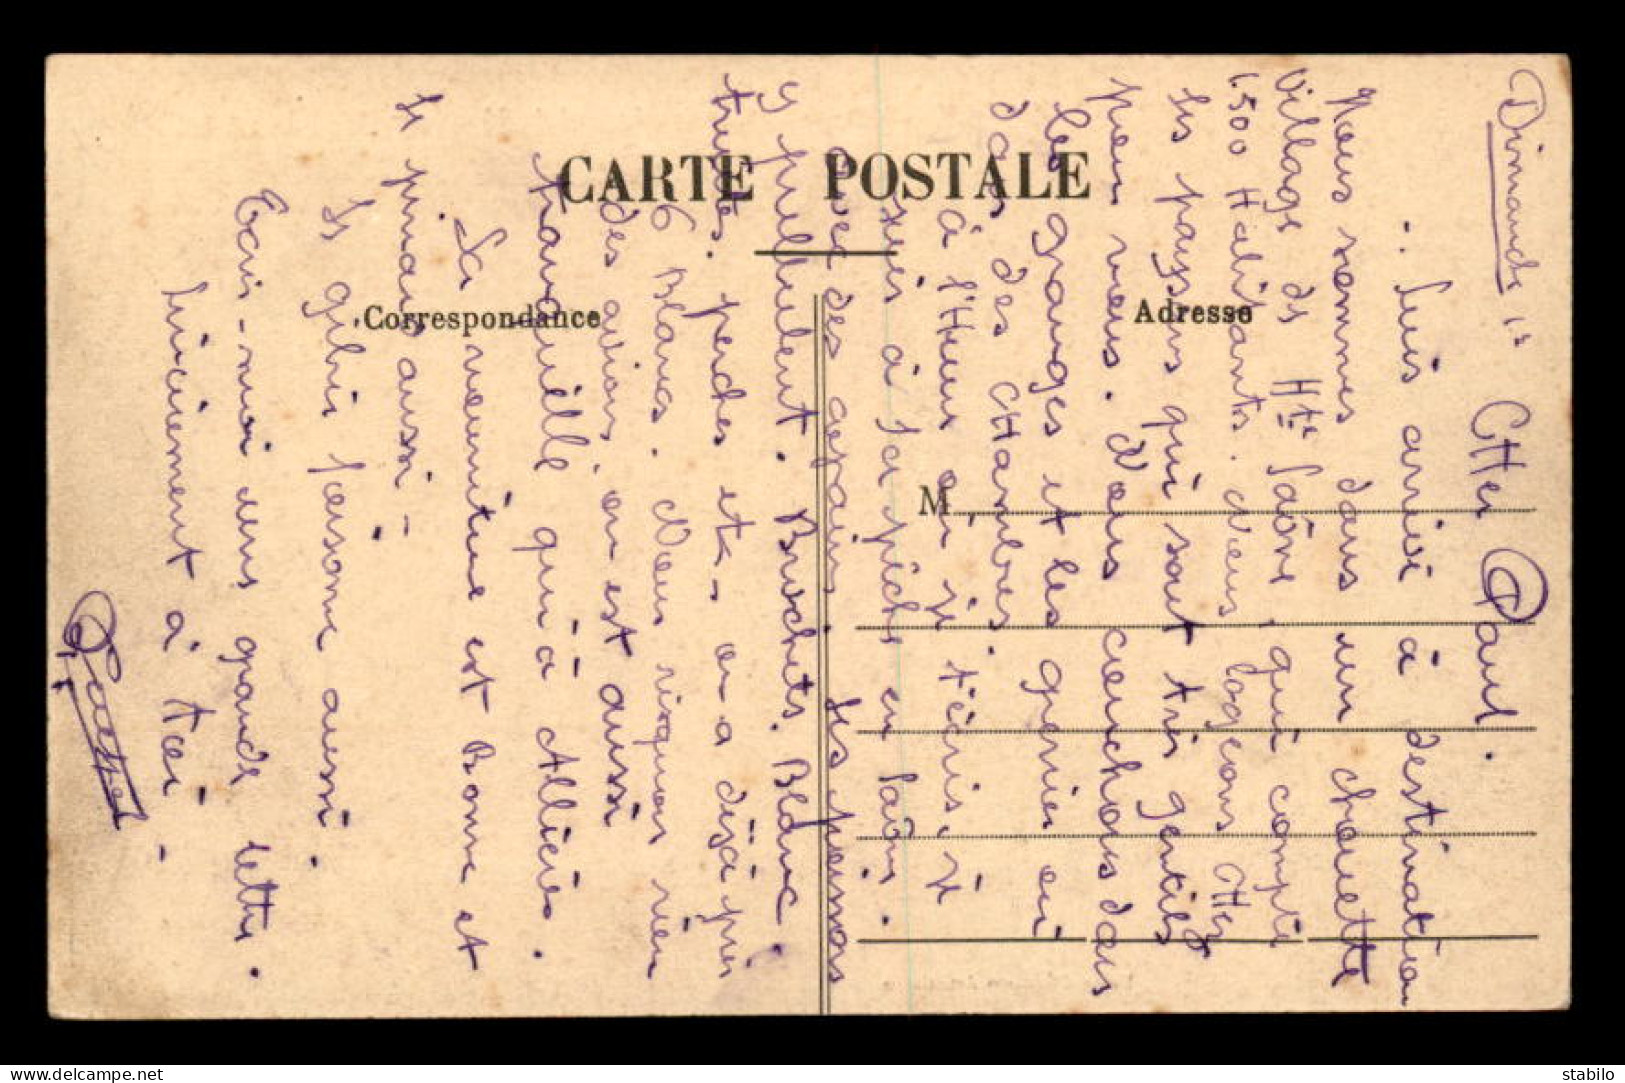 CARTE POSTALE
Correspondance
Adresse
M
Dimanche 15
Cher Paul.
.. Suis arrivé à destination
Nous sommes dans un chouette
Village de Hte Saône, qui compte
1.500 Habitants. Nous logeons chez
les paysans qui sont très gentils
pour nous. Nous couchons dans
les granges et les grenier ou
dans des chambres.
à l'Heure où je t'écris, je
suis à la pêche en Saône.
avec des copains. Les poissons
y pullulent. Brochets. Blanc.
truites. perches etc. on a déjà pris
6 Blancs. Nous risquons rien
des avions, on est aussi
tranquille qu'à Allières.
La nourriture est Bonne et
le pinard aussi -
Le gibier foisonne aussi.
Ecris-moi une grande lettre.
Sincèrement à toi -
www.delcampe.net
stabilo